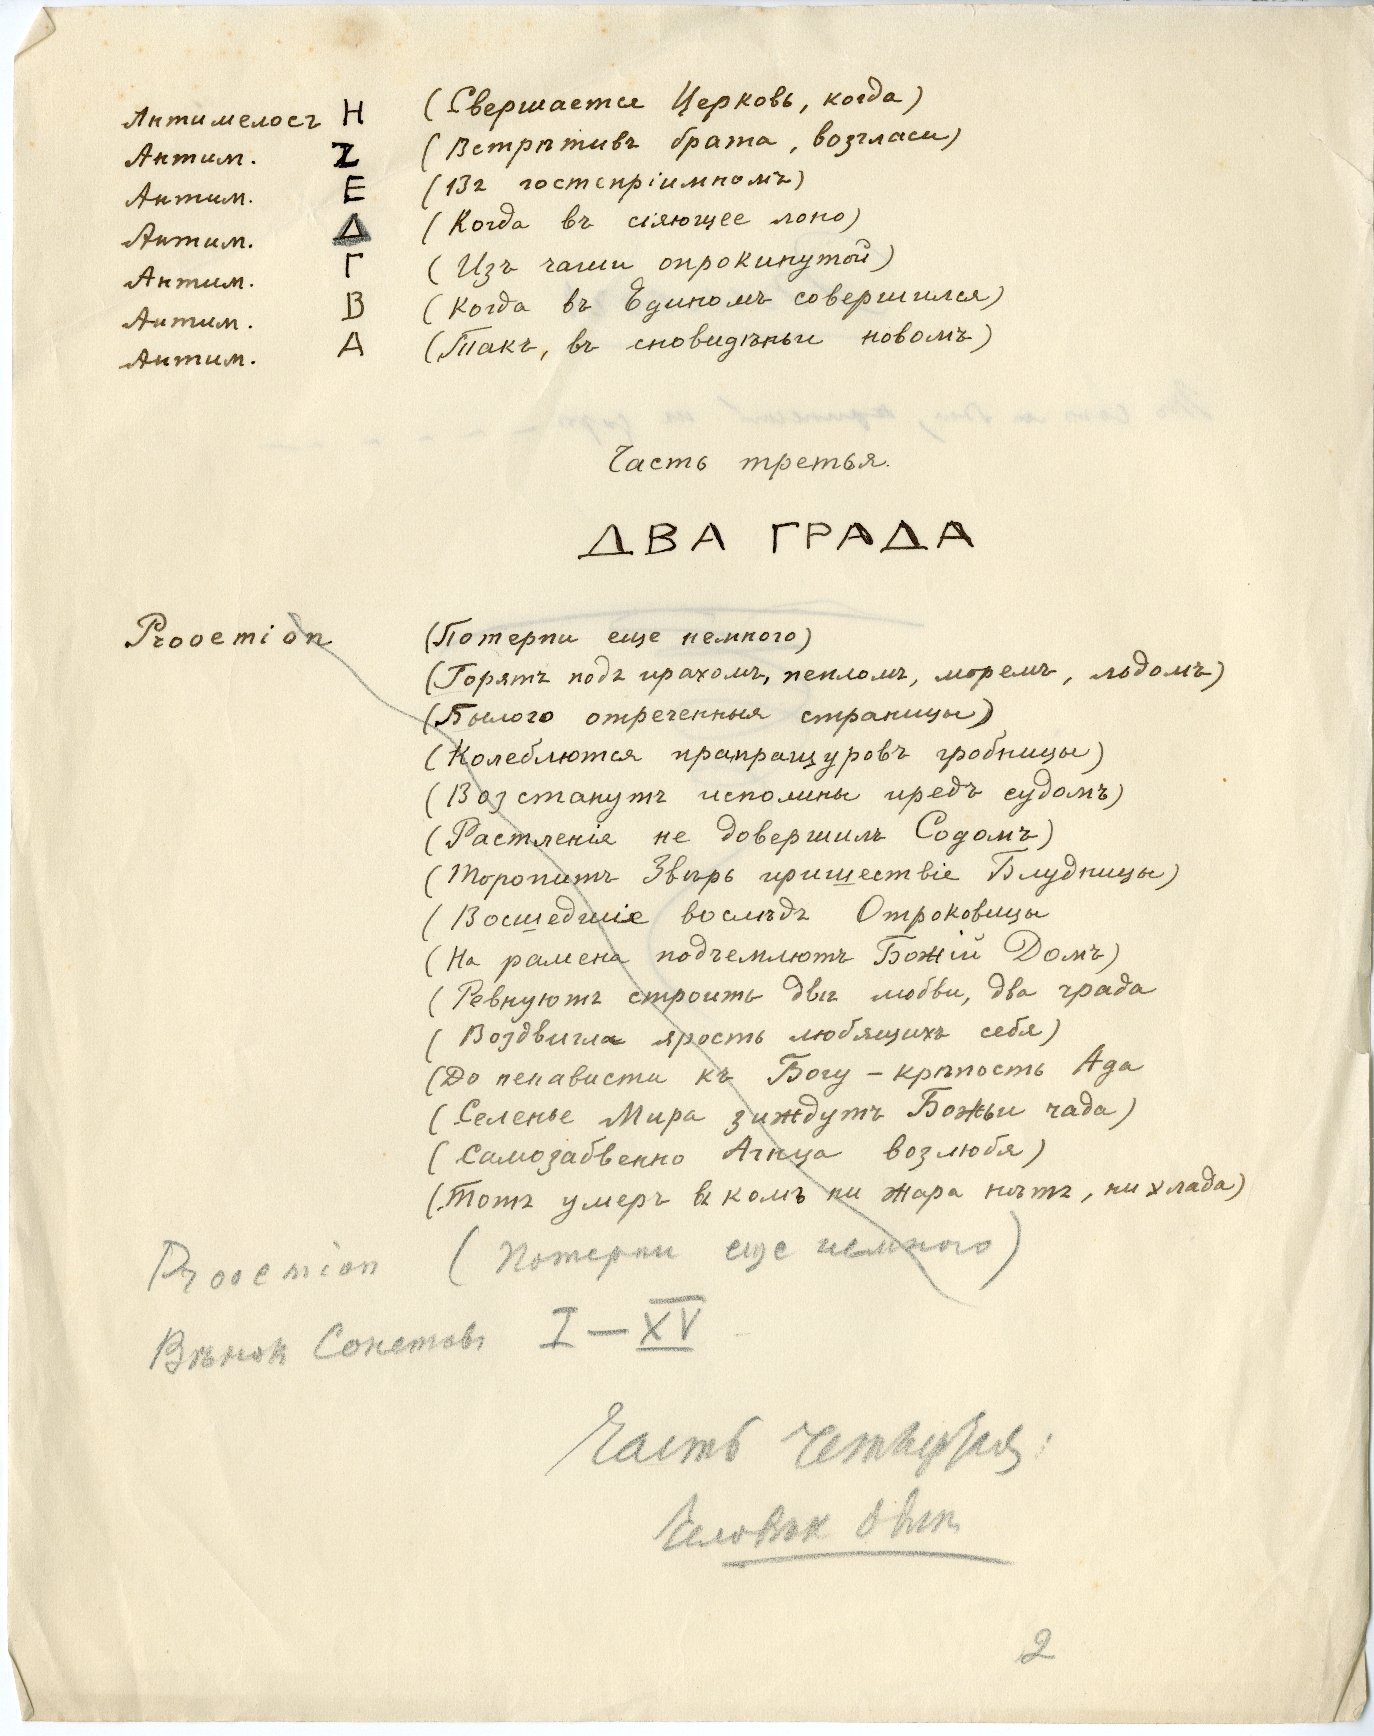 Антимелосъ Η (Свершается Церковь, когда)
Антим. Ζ (Встрѣтивъ брата, возгласи)
Антим. Ε (Въ гостепріимномъ)
Антим. Δ (Когда въ сіяющее лоно)
Антим. Γ (Изъ чаши опрокинутой)
Антим. Β (Когда въ Единомъ совершился)
Антим. Α (Такъ, въ сновидѣньи новомъ)
Часть третья.
ДВА ГРАДА
Prooemion (Потерпи еще немного)
(Горятъ подъ прахомъ, пепломъ, моремъ, льдомъ)
(Былого отреченныя страницы)
(Колеблются прапращуровъ гробницы)
(Возстанутъ исполины предъ судомъ)
(Растленія не довершилъ Содомъ)
(Торопитъ Звѣрь пришествіе Блудницы)
(Восшедшіе вослѣдъ Отроковицы
(На рамена подъемлютъ Божій Домъ)
(Ревнуютъ строить двѣ любви, два града
(Воздвигла ярость любящихъ себя)
(До ненависти къ Богу – крѣпость Ада
(Селенье Мира зиждутъ Божьи чада)
(Самозабвенно Агнца возлюбя)
(Тотъ умеръ въ комъ ни жара нѣтъ, ни хлада)
Prooemion (Потерпи еще немного)
Вѣнокъ Сонетовъ I – XV
Часть четвертая:
Человѣкъ
2